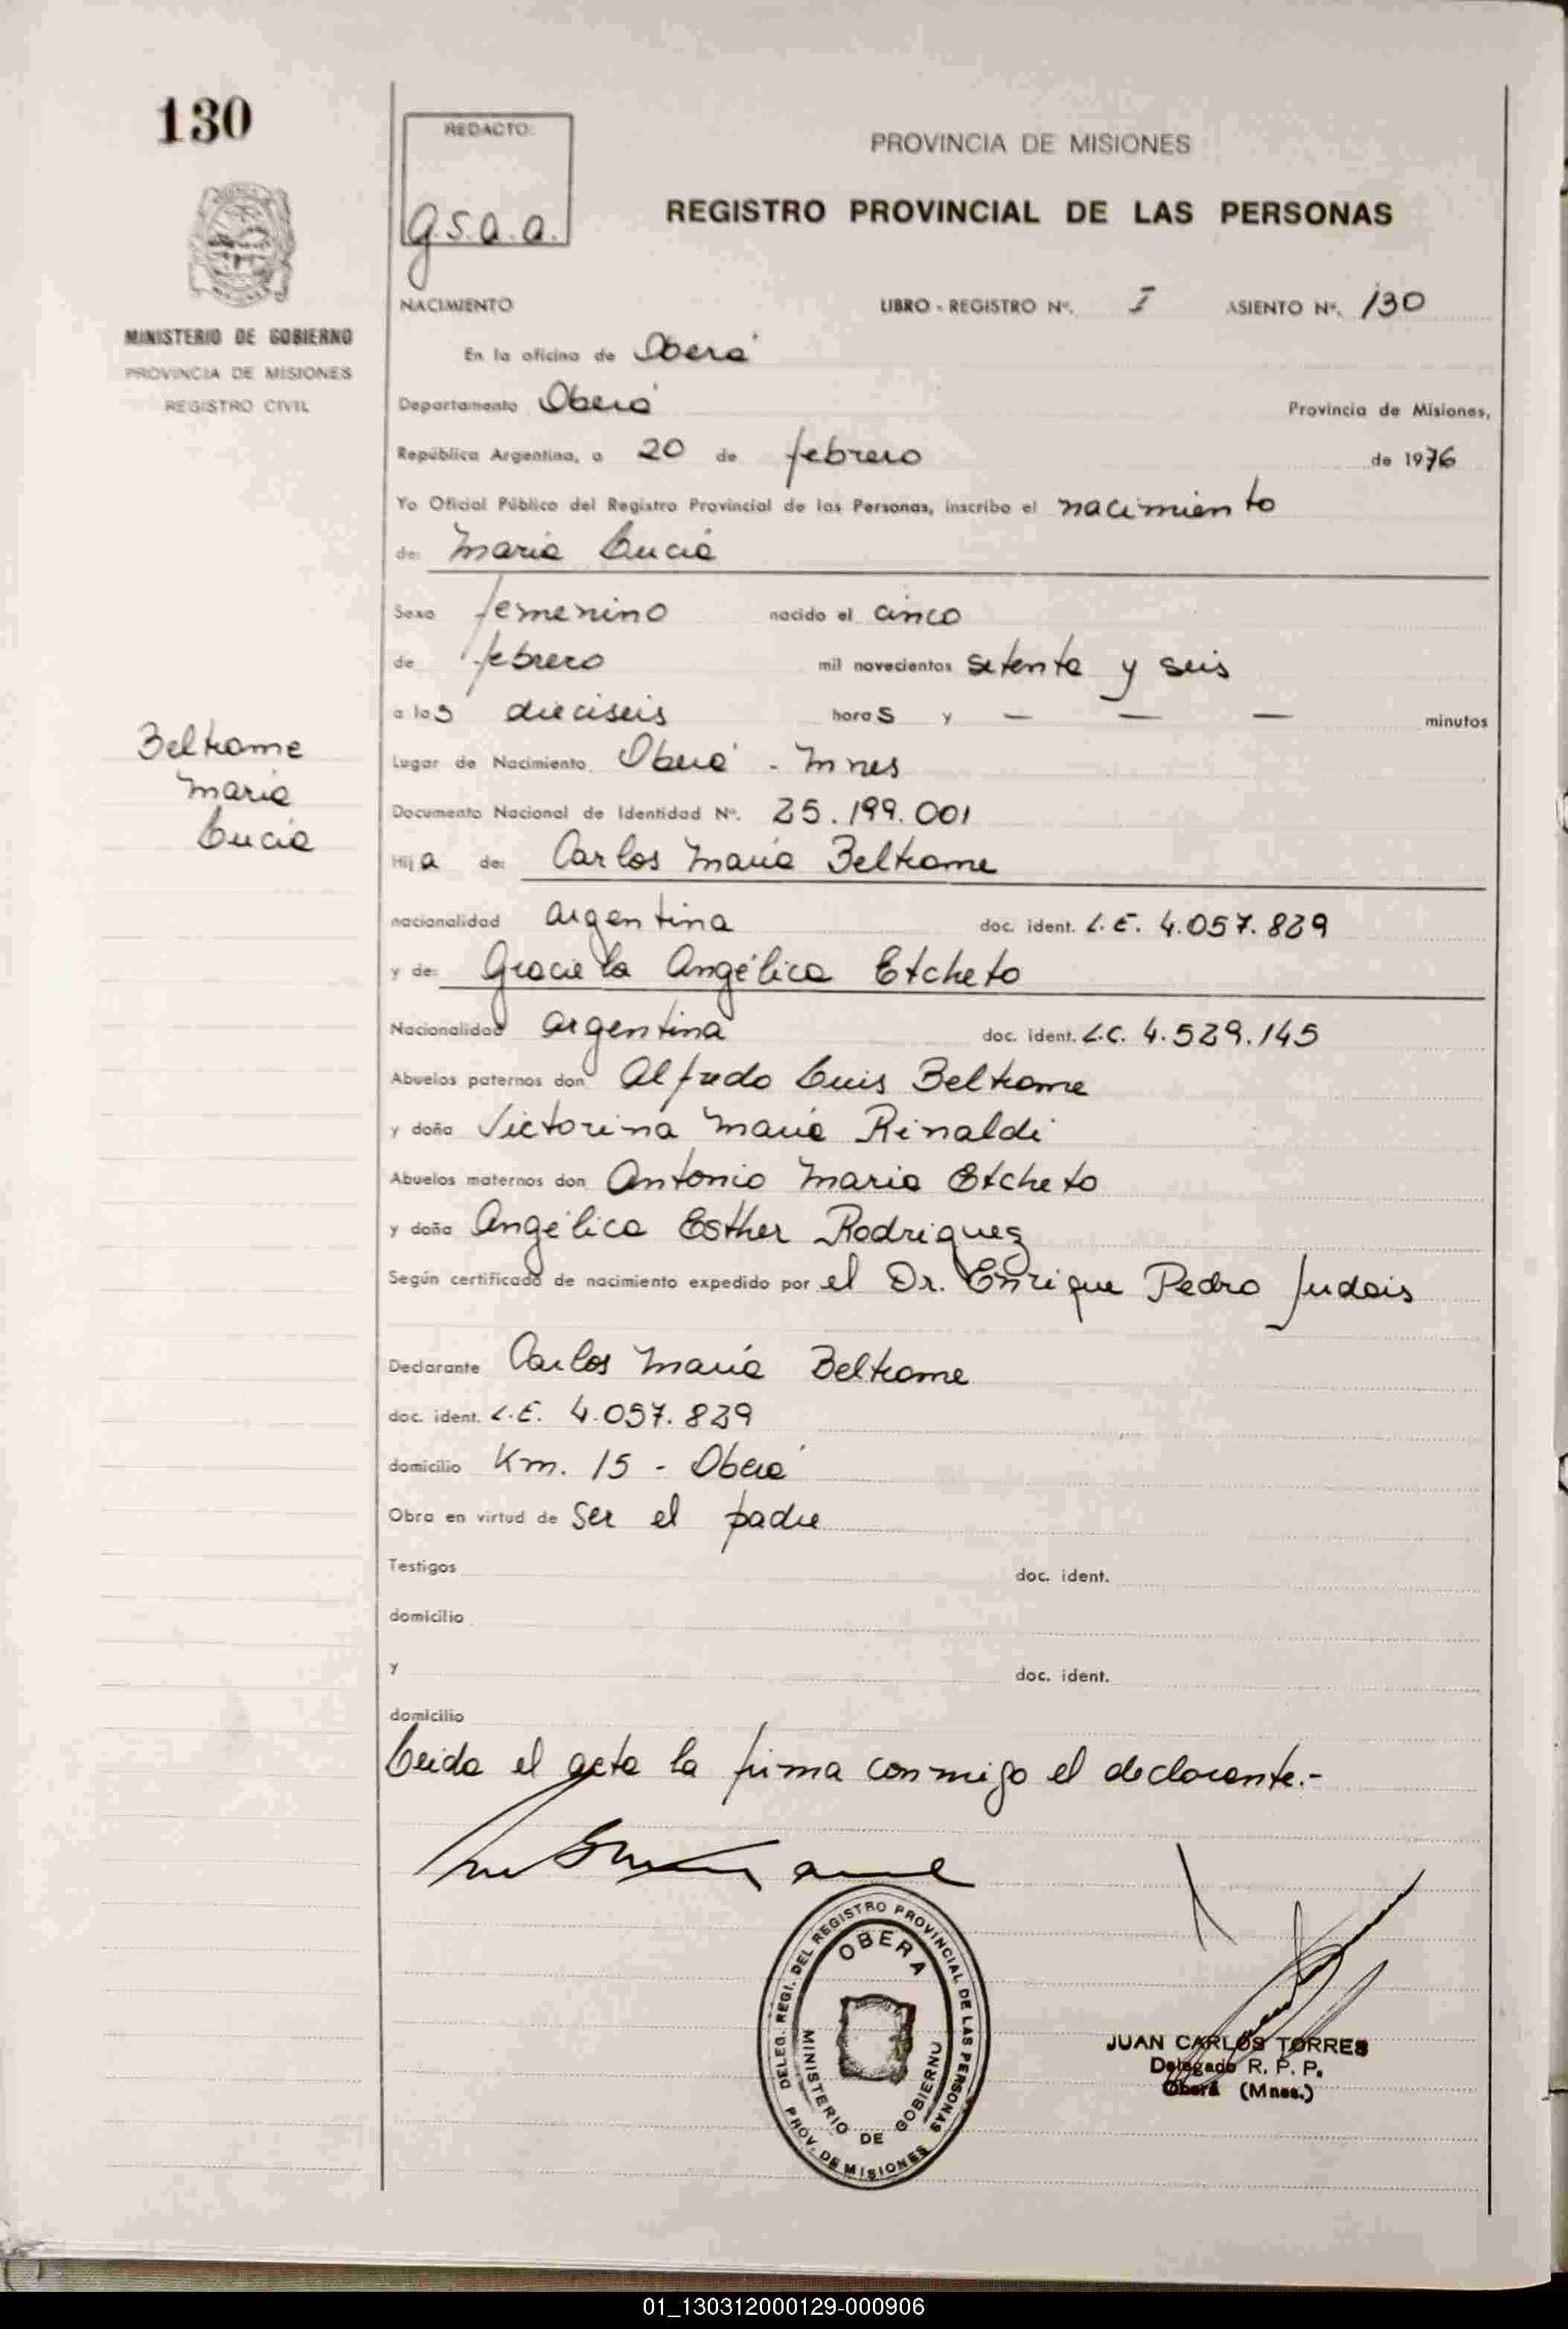 130
REDACTO:
g.s.a.a.
PROVINCIA DE MISIONES
REGISTRO PROVINCIAL DE LAS PERSONAS
MINISTERIO DE GOBIERNO
PROVINCIA DE MISIONES
REGISTRO CIVIL
NACIMIENTO LIBRO - REGISTRO Nº. I ASIENTO Nº. 130
En la oficina de Oberá
Departamento Oberá Provincia de Misiones,
República Argentina, a 20 de febrero de 1976
Yo Oficial Público del Registro Provincial de las Personas, inscribo el nacimiento
de: María Lucía
Sexo femenino nacido el cinco
de febrero mil novecientos setenta y seis
a las dieciseis horas y — — — minutos
Beltrame
María
Lucía
Lugar de Nacimiento Oberá - Mnes
Documento Nacional de Identidad Nº. 25.199.001
Hija de: Carlos María Beltrame
nacionalidad argentina doc. ident. L.E. 4.057.829
y de: Graciela Angélica Etcheto
Nacionalidad argentina doc. ident. L.C. 4.529.145
Abuelos paternos don Alfredo Luis Beltrame
y doña Victorina María Rinaldi
Abuelos maternos don Antonio María Etcheto
y doña Angélica Esther Rodriguez
Según certificado de nacimiento expedido por el Dr. Enrique Pedro Judais
Declarante Carlos María Beltrame
doc. ident. L.E. 4.057.829
domicilio Km. 15 - Oberá
Obra en virtud de ser el padre
Testigos doc. ident.
domicilio
y doc. ident.
domicilio
Leida el acta la firma conmigo el declarante.-
DELEG. REGI. DEL REGISTRO PROVINCIAL DE LAS PERSONAS
OBERA
MINISTERIO DE GOBIERNO
PROV. DE MISIONES
JUAN CARLOS TORRES
Delegado R. P. P.
Oberá (Mnes.)
01_130312000129-000906